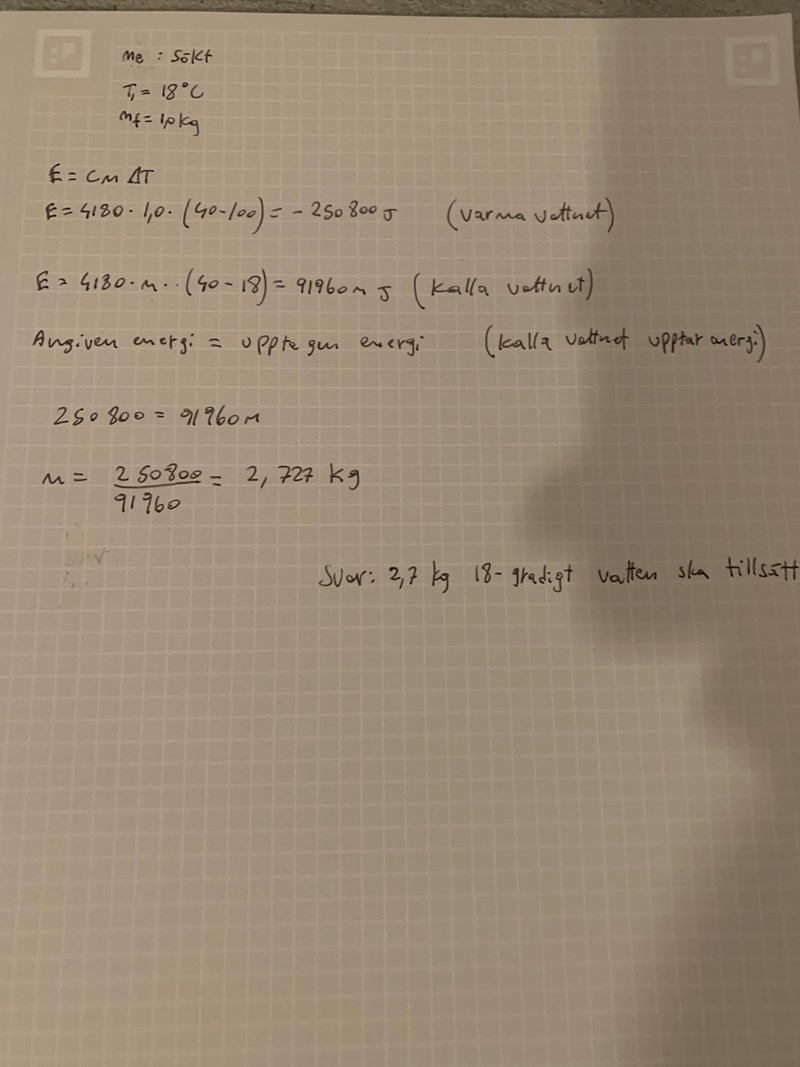 me : sökt
T₁ = 18°C
mf = 1,0 kg
E = cm ΔT
E = 4180 · 1,0 · (40-100) = - 250 800 J (varma vattnet)
E = 4180 · m · · (40 - 18) = 91960m J (kalla vattnet)
Angiven energi = upptagen energi (kalla vattnet upptar energi)
250 800 = 91960m
m = 250800/91960 = 2,727 kg
Svar: 2,7 kg 18-gradigt vatten ska tillsätt